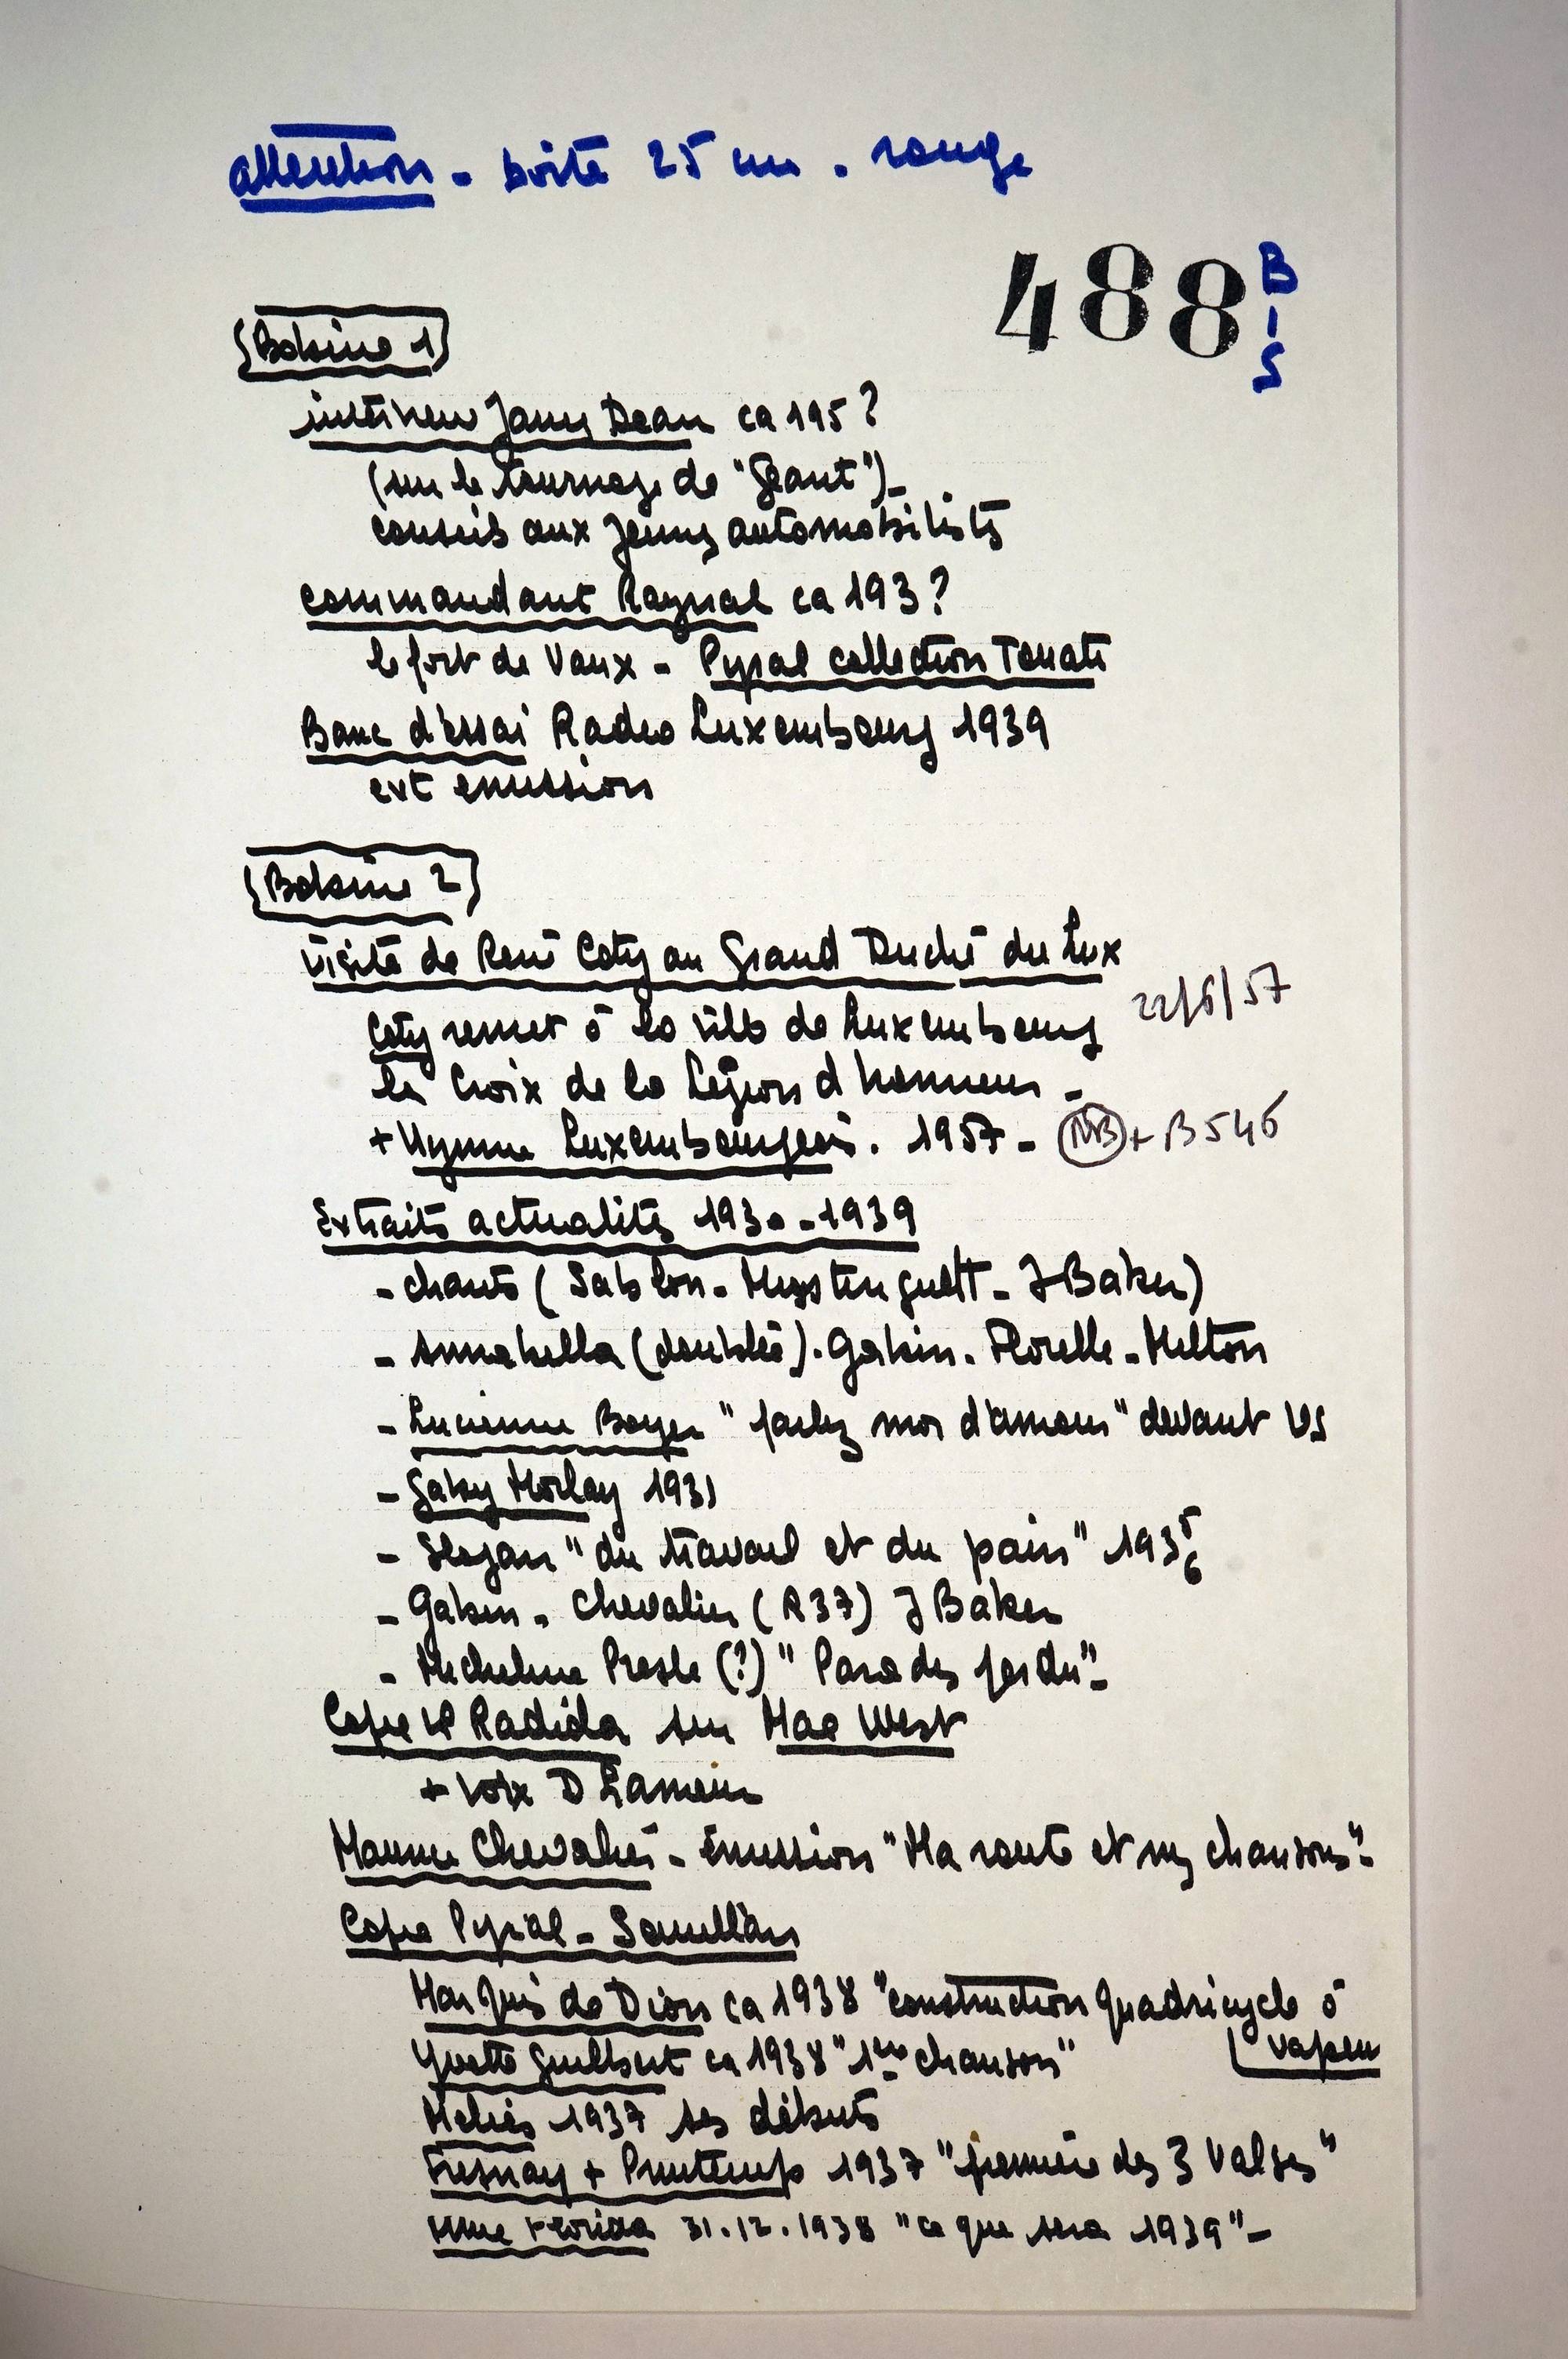 attention - boite 25 cm. rouge
488 BIS
Bobine 1
interview James Dean ca 195?
(sur le tournage de "Géant")-
conseils aux jeunes automobilistes
commandant Raynal ca 193?
le fort de Vaux - Pyral collection
Banc d'essai Radio Luxembourg 1939
ext emission
Bobine 2
Visite de René Coty au Grand Duché du Lux
22/6/57
Coty remet à la ville de Luxembourg
la Croix de la Légion d'honneur -
+ Hymne Luxembourgeois. 1957 - NB + B546
Extraits actualités 1930-1939
- chants (Sablon - Mysstinguett - J Baker)
- Annabella (doublée). Gabin. Florelle - Milton
- Lucienne Boyer "parlez moi d'amour" devant
- Gaby Morlay 1931
- Slogan "du travail et du pain" 1935 6
- Gabin - Chevalier (R37) J Baker
- Micheline Presle (?) "Paradis perdu"-
Copie LP Radiola sur Mae West
+ voix D Lamour
Maurice Chevalier - Emission "Ma route et mes chansons"-
Copie Pyral -
Marquis de Dion ca 1938 "construction quadricycle à
vapeur
Yvette Guilbert ca 1938 "1ère chanson"
Melies 1937 ses débuts
Fresnay + Printemps 1937 "première des 3 Valses"
Mme Florida 31.12.1938 "ce que sera 1939"-